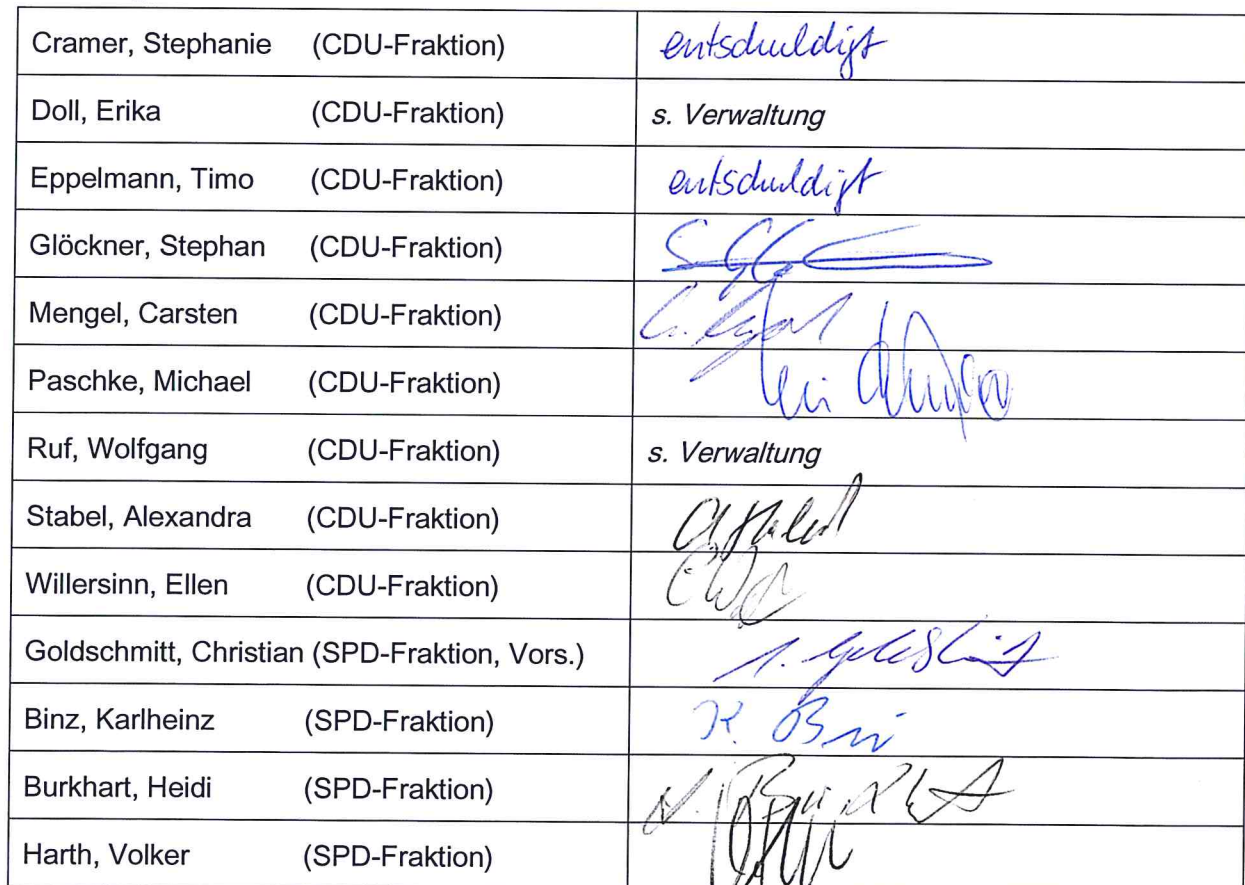 Cramer, Stephanie (CDU-Fraktion) entschuldigt
Doll, Erika (CDU-Fraktion) s. Verwaltung
Eppelmann, Timo (CDU-Fraktion) entschuldigt
Glöckner, Stephan (CDU-Fraktion)
Mengel, Carsten (CDU-Fraktion)
Paschke, Michael (CDU-Fraktion)
Ruf, Wolfgang (CDU-Fraktion) s. Verwaltung
Stabel, Alexandra (CDU-Fraktion)
Willersinn, Ellen (CDU-Fraktion)
Goldschmitt, Christian (SPD-Fraktion, Vors.)
Binz, Karlheinz (SPD-Fraktion)
Burkhart, Heidi (SPD-Fraktion)
Harth, Volker (SPD-Fraktion)